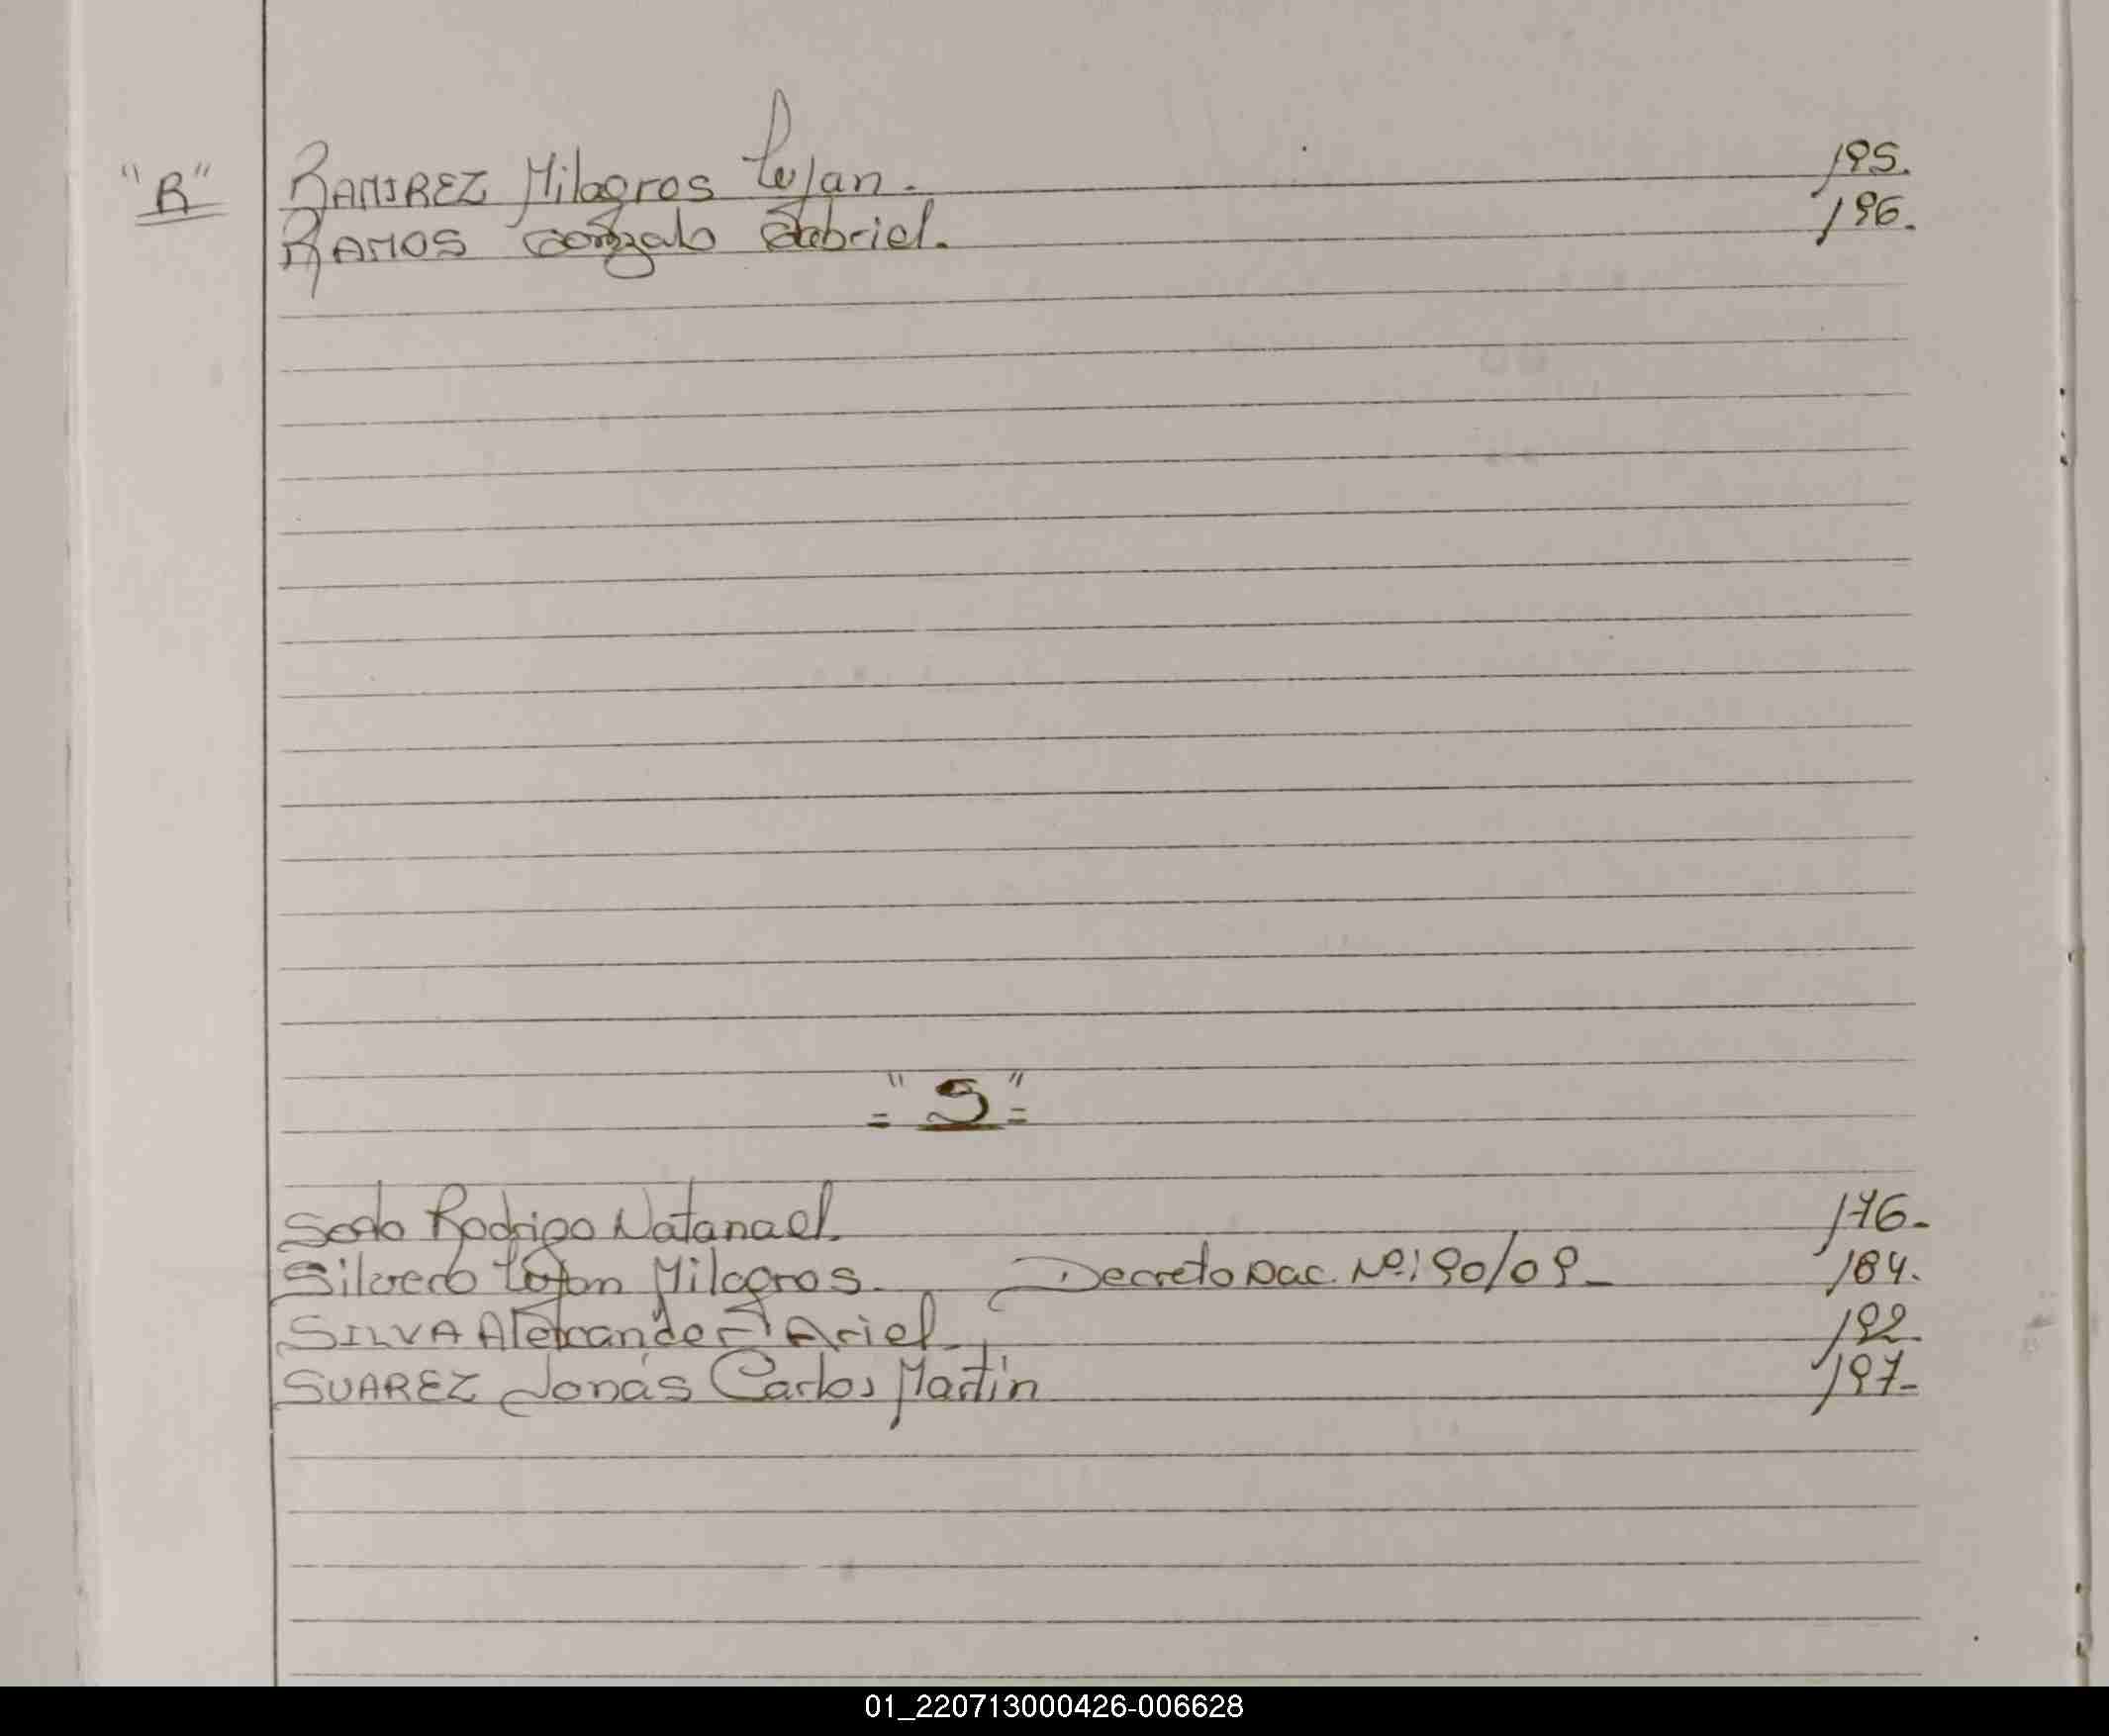 "R" RAMIREZ Milagros Lujan. 195.
RAMOS Gonzalo Gabriel. 196.
= "S" =
Sosto Rodrigo Natanael. 176.
Silvero Lujan Milagros. Decreto Nac. Nº: 90/09. 184.
SILVA Alexander Ariel. 192.
SUAREZ Jonás Carlos Martín 197.
01_220713000426-006628